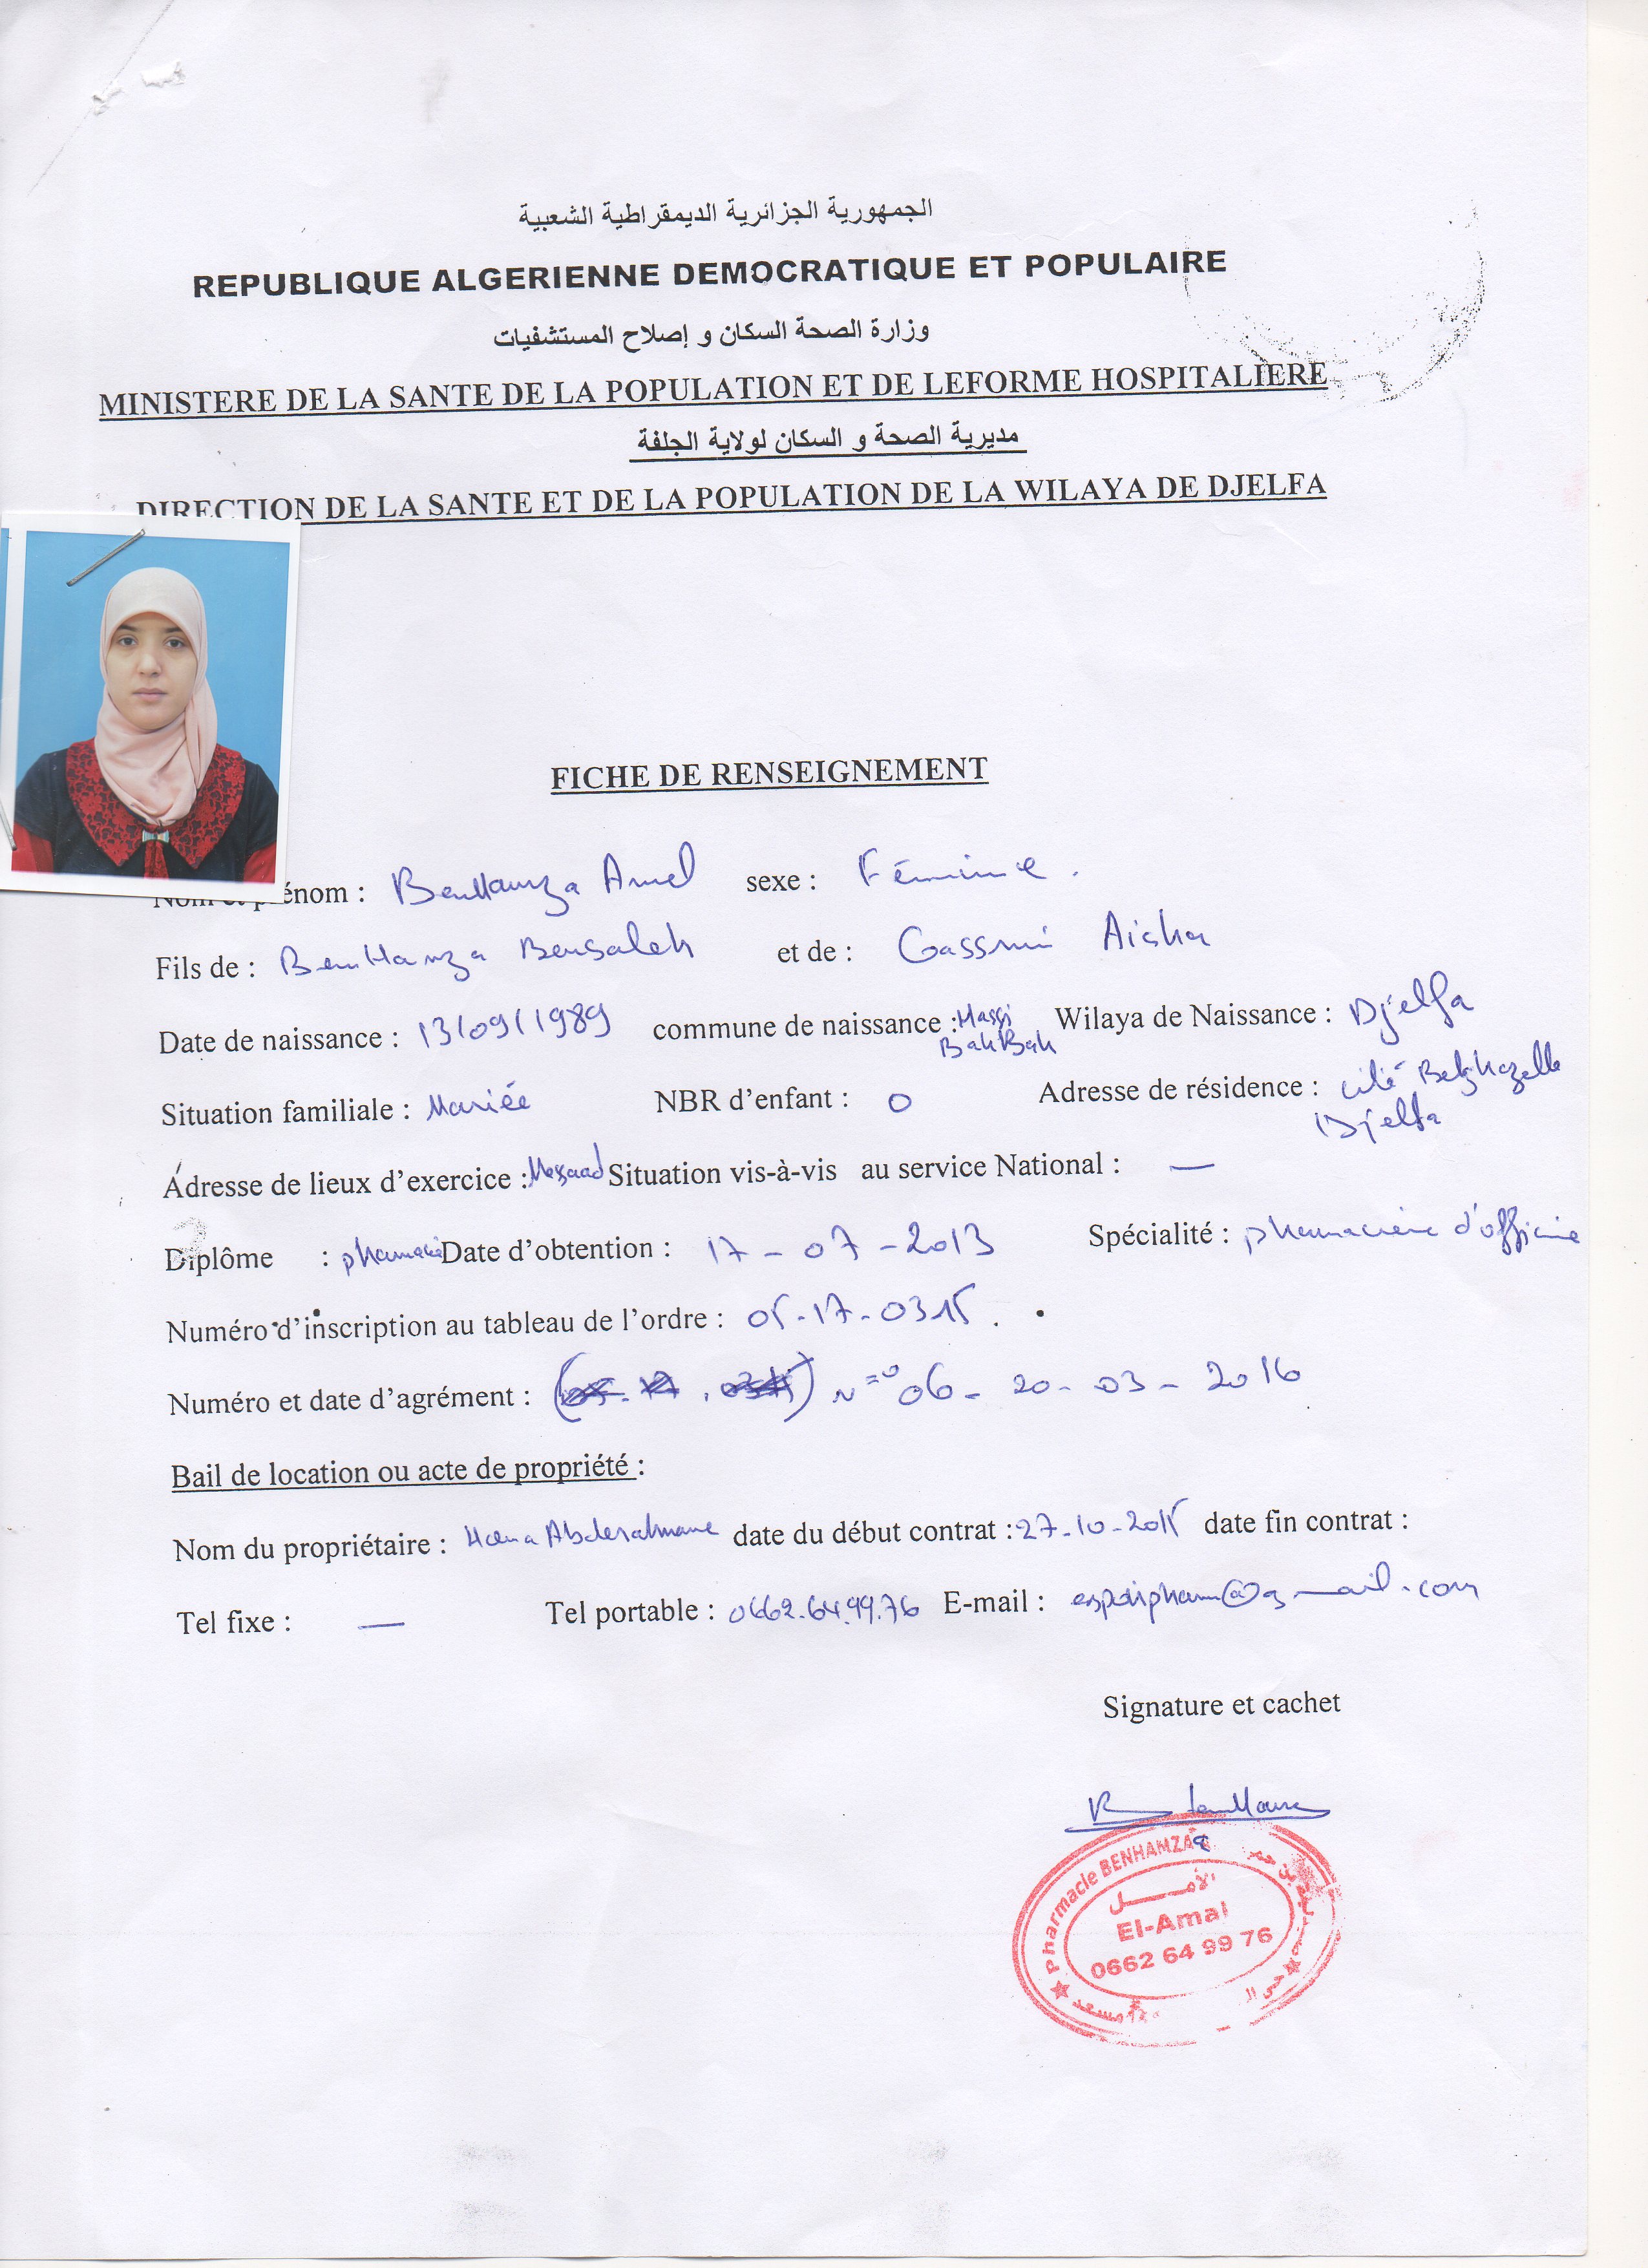 الجمهورية الجزائرية الديمقراطية الشعبية
REPUBLIQUE ALGERIENNE DEMOCRATIQUE ET POPULAIRE
وزارة الصحة السكان و إصلاح المستشفيات
MINISTERE DE LA SANTE DE LA POPULATION ET DE LEFORME HOSPITALIERE
مديرية الصحة و السكان لولاية الجلفة
DIRECTION DE LA SANTE ET DE LA POPULATION DE LA WILAYA DE DJELFA
FICHE DE RENSEIGNEMENT
Nom et prénom : BenHamza Amel sexe : Féminine .
Fils de : BenHamza Bensaleh et de : Gassmi Aicha
Date de naissance : 13/09/1989 commune de naissance : Hassi BahBah Wilaya de Naissance : Djelfa
Situation familiale : Mariée NBR d'enfant : 0 Adresse de résidence : cité Djelfa
Adresse de lieux d'exercice : Messaad Situation vis-à-vis au service National : —
Diplôme : pharmacie Date d'obtention : 17-07-2013 Spécialité : pharmacienne d'officine
Numéro d'inscription au tableau de l'ordre : 05-17-0315 .
Numéro et date d'agrément : N° 06- 20-03-2016
Bail de location ou acte de propriété :
Nom du propriétaire : Abderahmane date du début contrat : 27-10-2015 date fin contrat :
Tel fixe : — Tel portable : 0662.64.99.76 E-mail :
Signature et cachet
Pharmacie BENHAMZA
الأمــــل
El-Amal
0662 64 99 76
مسعد